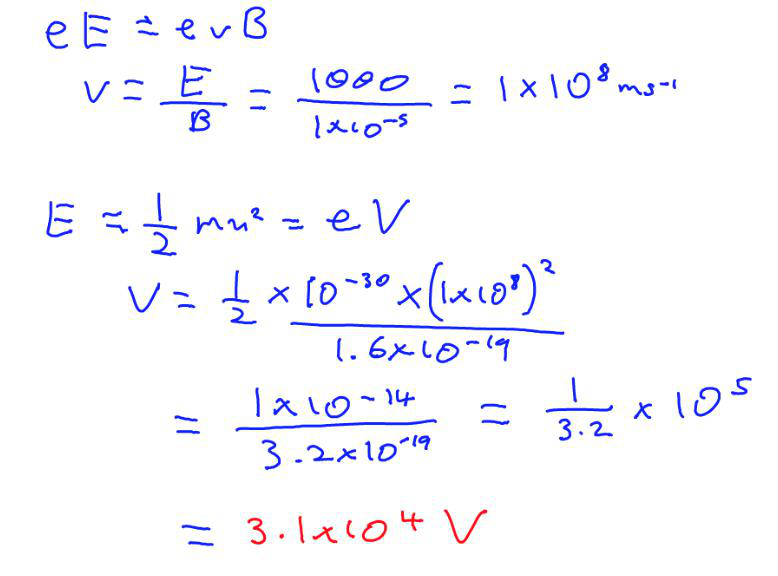 eE = evB
v = E/B = 1000/1×10⁻⁵ = 1×10⁸ ms⁻¹
E = 1/2 mu² = eV
V = 1/2 × 10⁻³⁰ × (1×10⁸)² / 1.6×10⁻¹⁹
= 1×10⁻¹⁴/3.2×10⁻¹⁹ = 1/3.2 × 10⁵
= 3.1×10⁴ V